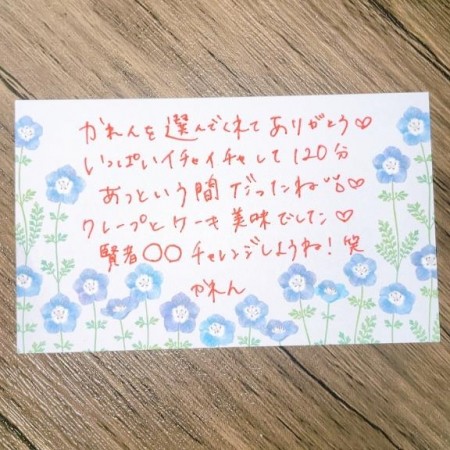 かれんを選んでくれてありがとう♡
いっぱいイチャイチャして120分
あっという間だったね
クレープとケーキ美味でした♡
賢者〇〇チャレンジしようね！笑
かれん